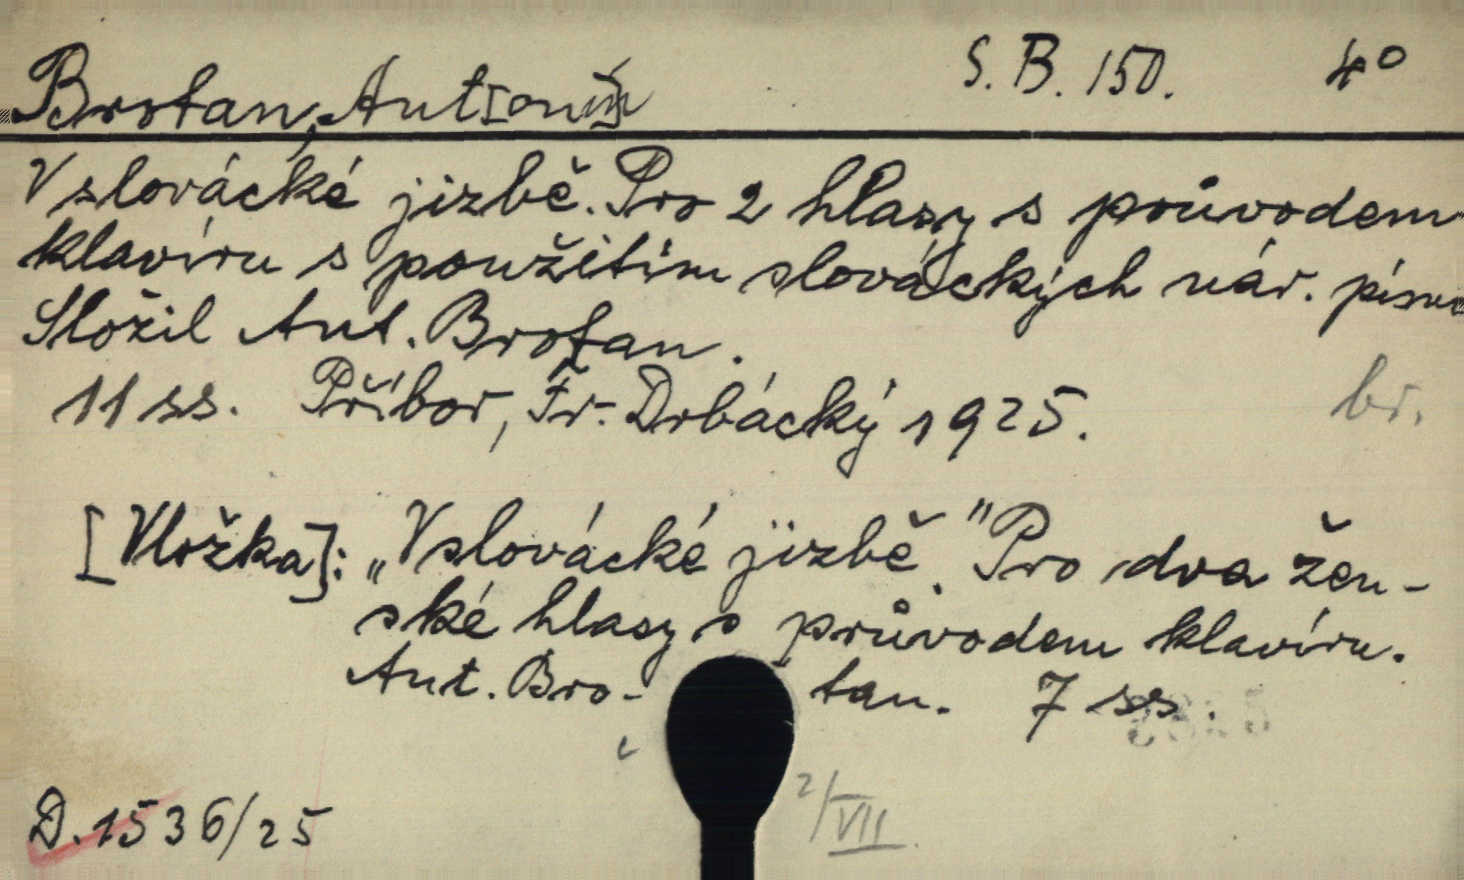 Brotan, Ant[onín] S. B. 150. 4°
V slovácké jizbě. Pro 2 hlasy s průvodem
klavíru s použitím slováckých nár. písní
Složil Ant. Brotan.
11 ss. Příbor, Fr. Drbácký 1925. br.
[Vložka]: „V slovácké jizbě." Pro dva žen-
ské hlasy s průvodem klavíru.
Ant. Bro- tan. 7 ss.
D. 1536/25 2/VII.